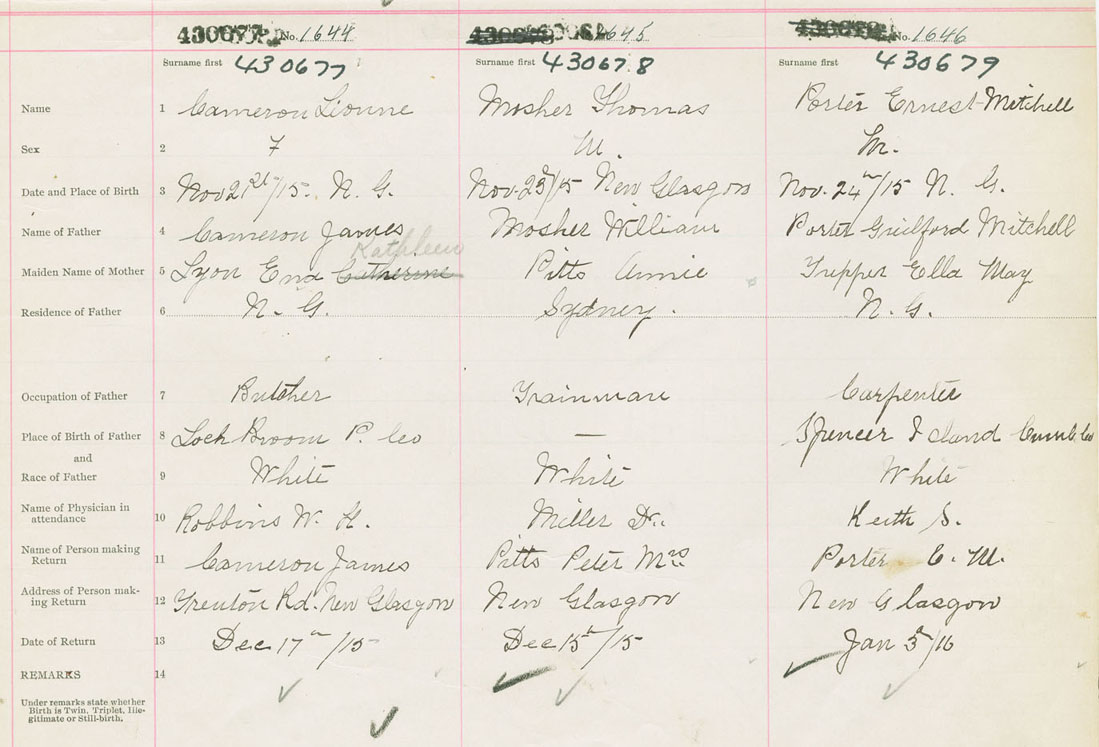 No. 1644 1645 No. 1646
Surname first 430677 Surname first 430678 Surname first 430679
Name 1 Cameron Lionne Mosher Thomas Porter Ernest Mitchell
Sex 2 F M. M.
Date and Place of Birth 3 Nov 21st/15. N. G. Nov. 23d/15 New Glasgow Nov. 24th/15 N. G.
Name of Father 4 Cameron James Mosher William Porter Guilford Mitchell
Kathleen
Maiden Name of Mother 5 Lyon Ena Catherine Pitts Annie Tupper Ella May
Residence of Father 6 N. G. Sydney. N. G.
Occupation of Father 7 Butcher Trainman Carpenter
Place of Birth of Father 8 Loch Broom P. Co — Spencer Island Cumb. Co
and
Race of Father 9 White White White
Name of Physician in
attendance 10 Robbins W. H. Miller Dr. Keith S.
Name of Person making
Return 11 Cameron James Pitts Peter Mrs Porter M.
Address of Person mak-
ing Return 12 Trenton Rd. New Glasgow New Glasgow New Glasgow
Date of Return 13 Dec 17th/15 Dec 15th/15 Jan /16
REMARKS 14
Under remarks state whether
Birth is Twin, Triplet, Ille-
gitimate or Still-birth.